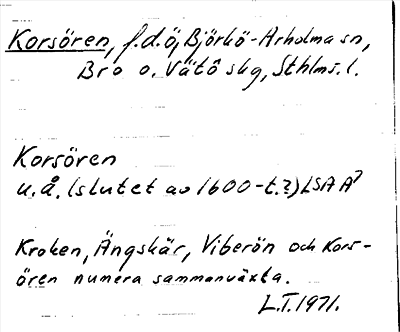 Korsören, f.d.ö, Björkö-Arholma sn,
Bro o. Vätö skg, Sthlms. l.
Korsören
u.å. (slutet av 1600-t.?) LSA A7
Kroken, Ängskär, Viberön och Kors-
ören numera sammanväxta.
L.T. 1971.